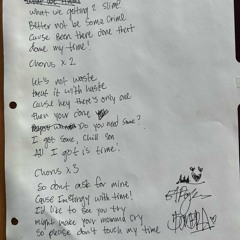 what we getting 2 slime
Better not be Some Crime
Cause Been there done that
done my time!
Chorus x 2
Let's not waste
treat it with haste
Cause hey there's only one
then your done
Do you need some?
I got some, chill son
All I got is time!
Chorus x3
So dont ask for mine
Cause I'm stingy with time!
I'd like to see you try
Might make your momma Cry
So please don't touch my time